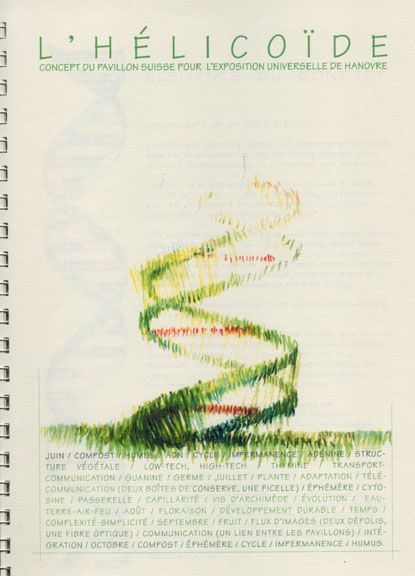 L'HÉLICOÏDE
CONCEPT DU PAVILLON SUISSE POUR L'EXPOSITION UNIVERSELLE DE HANOVRE
JUIN / COMPOST / HUMUS / ADN / CYCLE / IMPERMANENCE / ADENINE / STRUC-
TURE VÉGÉTALE / LOW-TECH, HIGH-TECH THYMINE TRANSPORT-
COMMUNICATION / GUANINE / GERME / JUILLET / PLANTE / ADAPTATION / TÉLÉ-
COMMUNICATION (DEUX BOÎTES DE CONSERVE, UNE FICELLE) / ÉPHÉMÈRE / CYTO-
SINE / PASSERELLE / CAPILLARITÉ / VIS D'ARCHIMÈDE / ÉVOLUTION / EAU-
TERRE-AIR-FEU / AOÛT / FLORAISON / DÉVELOPPEMENT DURABLE / TEMPS /
COMPLEXITÉ-SIMPLICITÉ / SEPTEMBRE / FRUIT / FLUX D'IMAGES (DEUX DÉPOLIS,
UNE FIBRE OPTIQUE) / COMMUNICATION (UN LIEN ENTRE LES PAVILLONS) / INTÉ-
GRATION / OCTOBRE / COMPOST / ÉPHÉMÈRE / CYCLE / IMPERMANENCE / HUMUS.